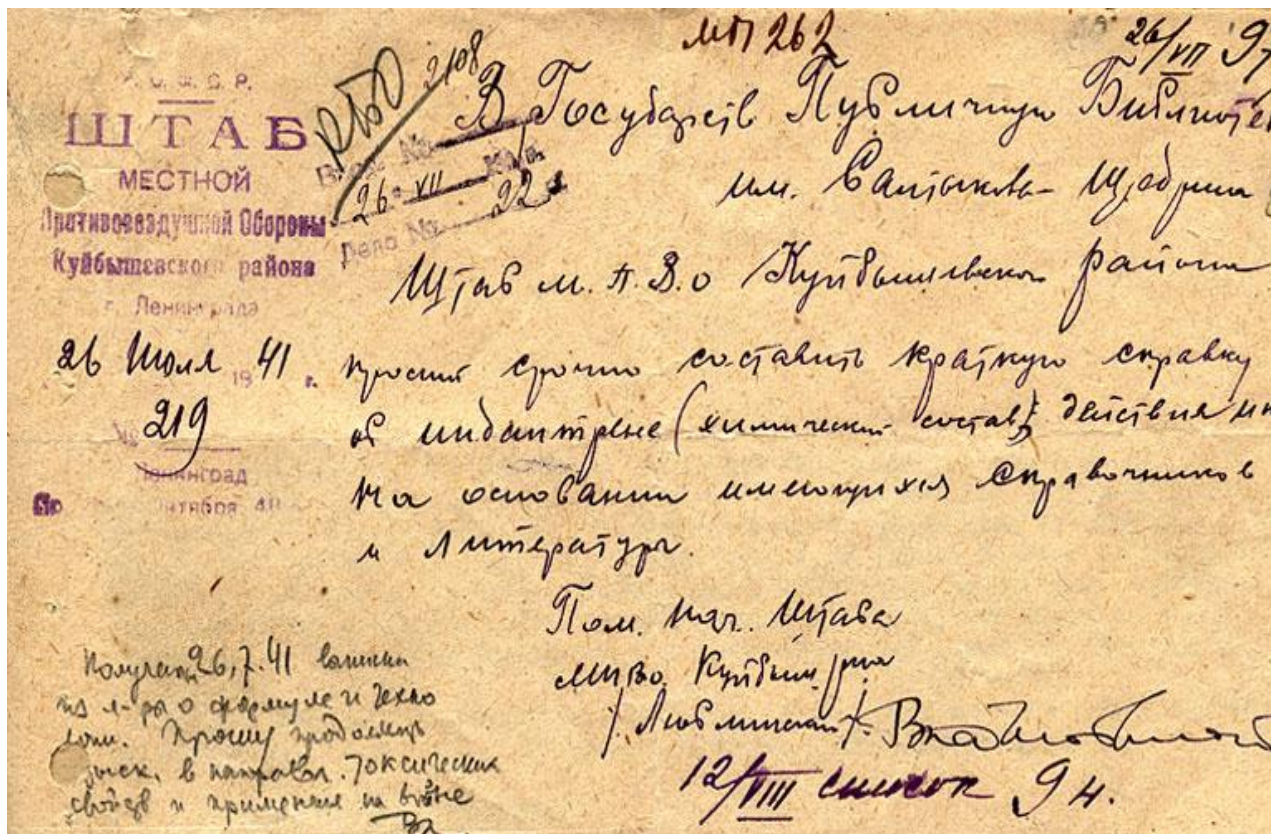 МП 262
26/VII 9ч
Р.С.Ф.С.Р.
ШТАБ
МЕСТНОЙ
Противовоздушной Обороны
Куйбышевского района
г. Ленинграда
26 Июля 1941 г.
№ 219
Ленинград
2108
Вход. №
26. VII
Дело № 22
В Государств Публичную Библиотек
им. Салтыкова-Щедрина
Штаб м.п.в.о Куйбышевского района
просит срочно составить краткую справку
об индантрене (химический состав), действия
на основании имеющихся справочников
и литературы.
Пом. нач. Штаба
МПВО Куйбыш. р-на
/Любминский/
12/VIII список 9 н.
Получена 26.7.41
из л-ры о формуле и техно
логии. Прошу продолжить
поиск. в направл. токсических
свойств и применения на войне